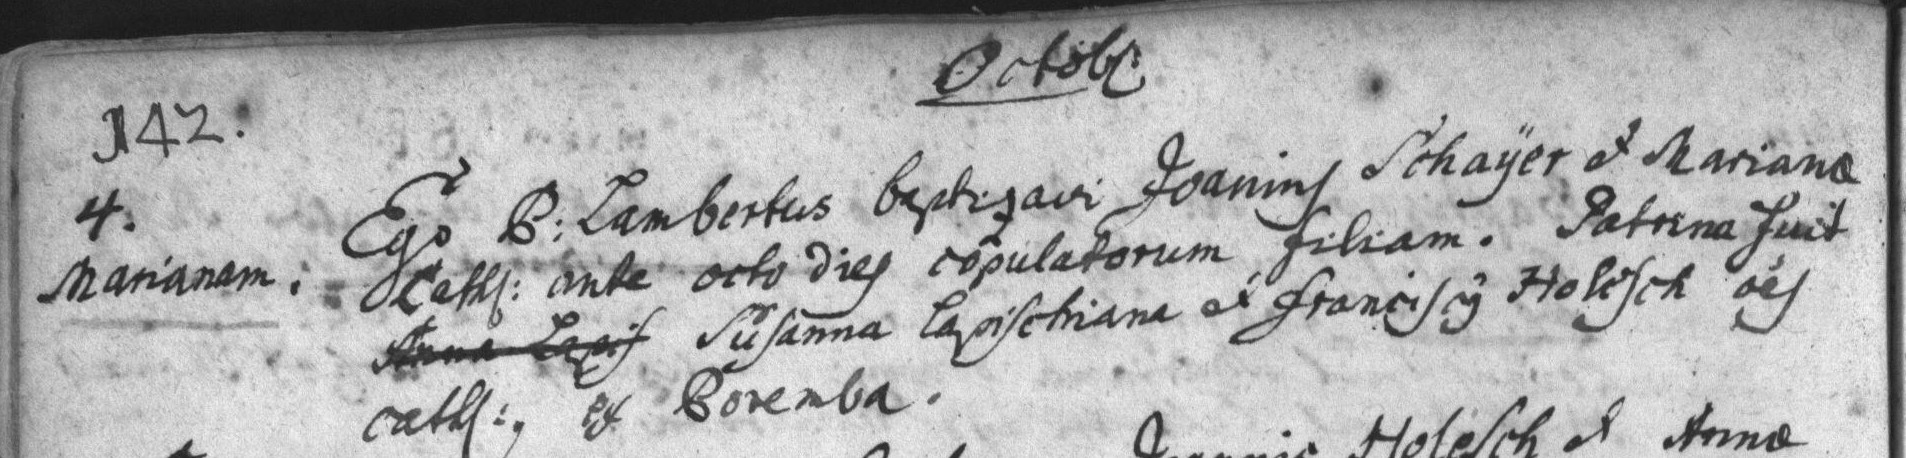 Octob:
142.
4. Ego P: Lambertus baptizavi Joannis Schaÿer et Marianæ
Marianam. Cath: ante octo dies copulatorum filiam. Patrina fuit
Anna Lapis Susanna Lapischiana et Franciscq Holesch oēs
cath:, ex Poremba.
Joannis Holesch et Annæ